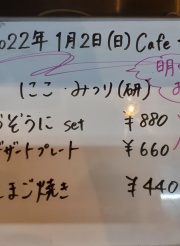 2022年1月2日(日) Cafe
明
にこ・みつり(研)
ぞうに set ¥880
ザートプレート ¥660
まご焼き ¥440